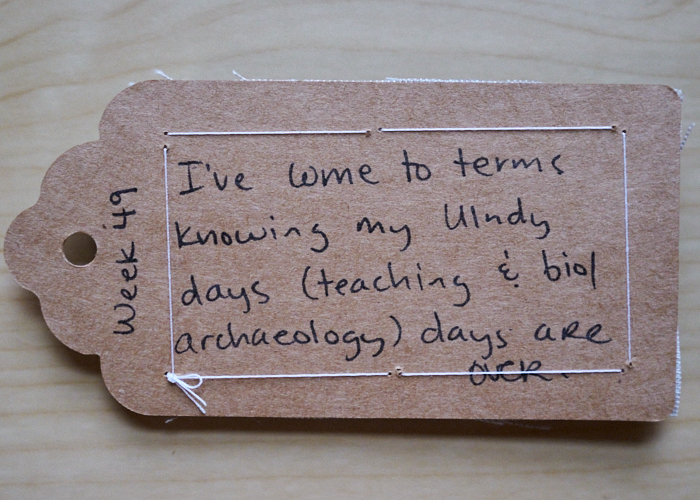 Week 49
I've come to terms
knowing my UIndy
days (teaching & biol
archaeology) days are
over.